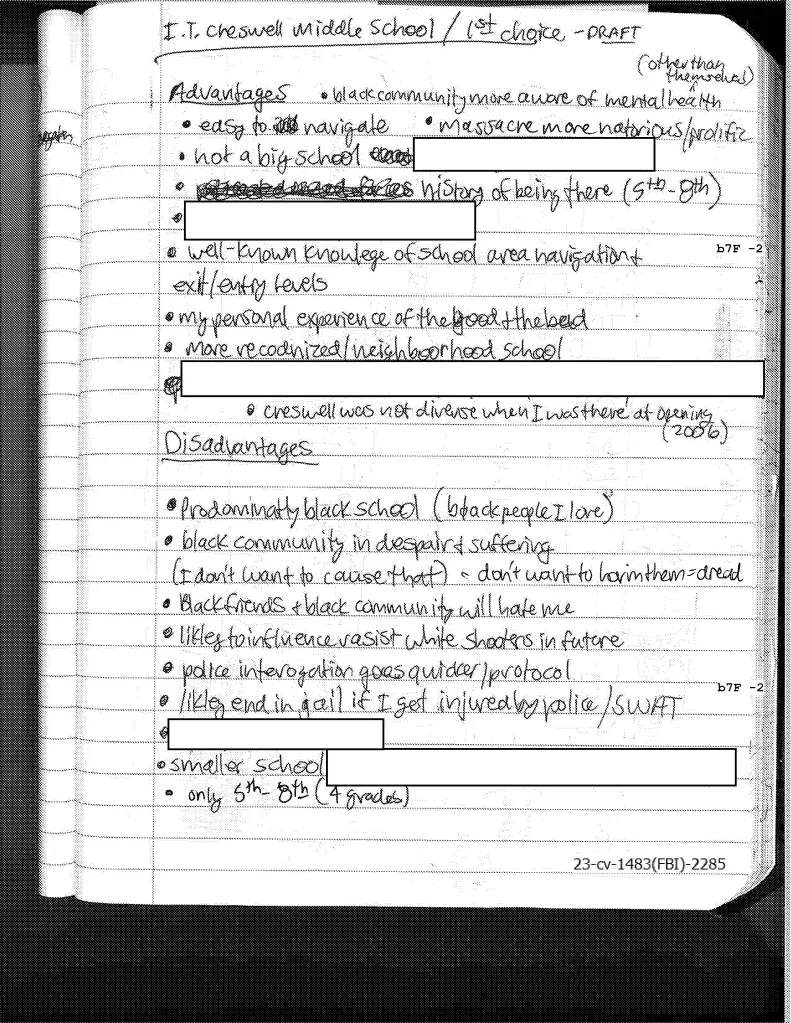 I.T. Creswell Middle School / 1st choice - DRAFT
(other than
themselves)
Advantages • black community more aware of mental health
• easy to navigate • massacre more notorious/prolific
• not a big school
• history of being there (5th-8th)
• well-known knowlege of school area navigation +
b7F -2
exit/entry levels
• my personal experience of the good + the bad
• more recodnized/neighboorhood school
• creswell was not diverse when I was there at opening
(2006)
Disadvantages
• Prodominatly black school (black people I love)
• black community in despair + suffering
(I don't want to cause that) - don't want to harm them = dread
• Black friends + black community will hate me
• likley to influence rasist white shooters in future
• police interogation goes quicker/protocol
b7F -2
• likley end in jail if I get injured by police/SWAT
• smaller school
• only 5th-8th (4 grades)
23-cv-1483(FBI)-2285